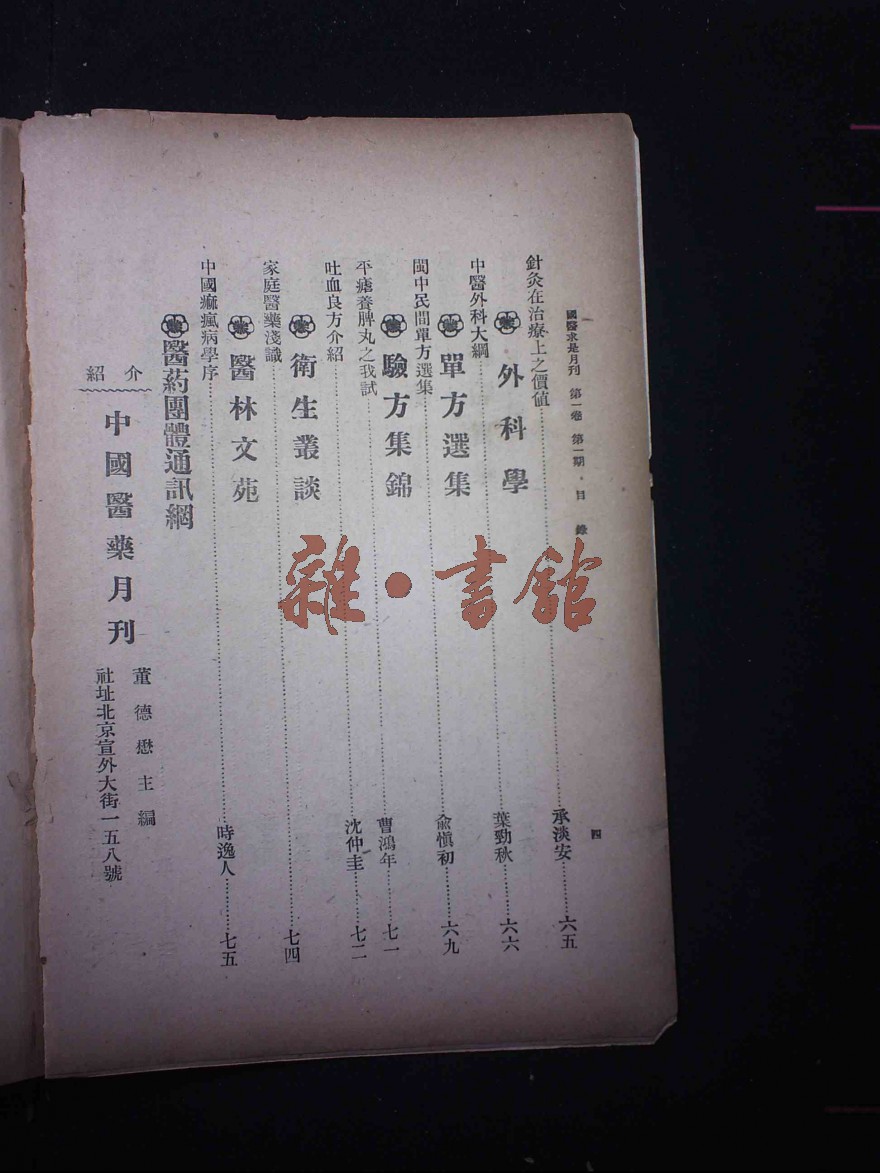 國醫求是月刊 第一卷 第一期·目 錄
四
針灸在治療上之價值……承淡安……六五
外科學
中醫外科大綱……葉勁秋……六六
單方選集
閩中民間單方選集……俞慎初……六九
驗方集錦
平瘧養脾丸之我試……曹鴻年……七一
吐血良方介紹……沈仲圭……七二
衛生叢談
家庭醫藥淺識……七四
醫林文苑
中國痲瘋病學序……時逸人……七五
醫葯團體通訊網
介紹
中國醫藥月刊
董德懋主編
社址北京宣外大街一五八號
雜·書館